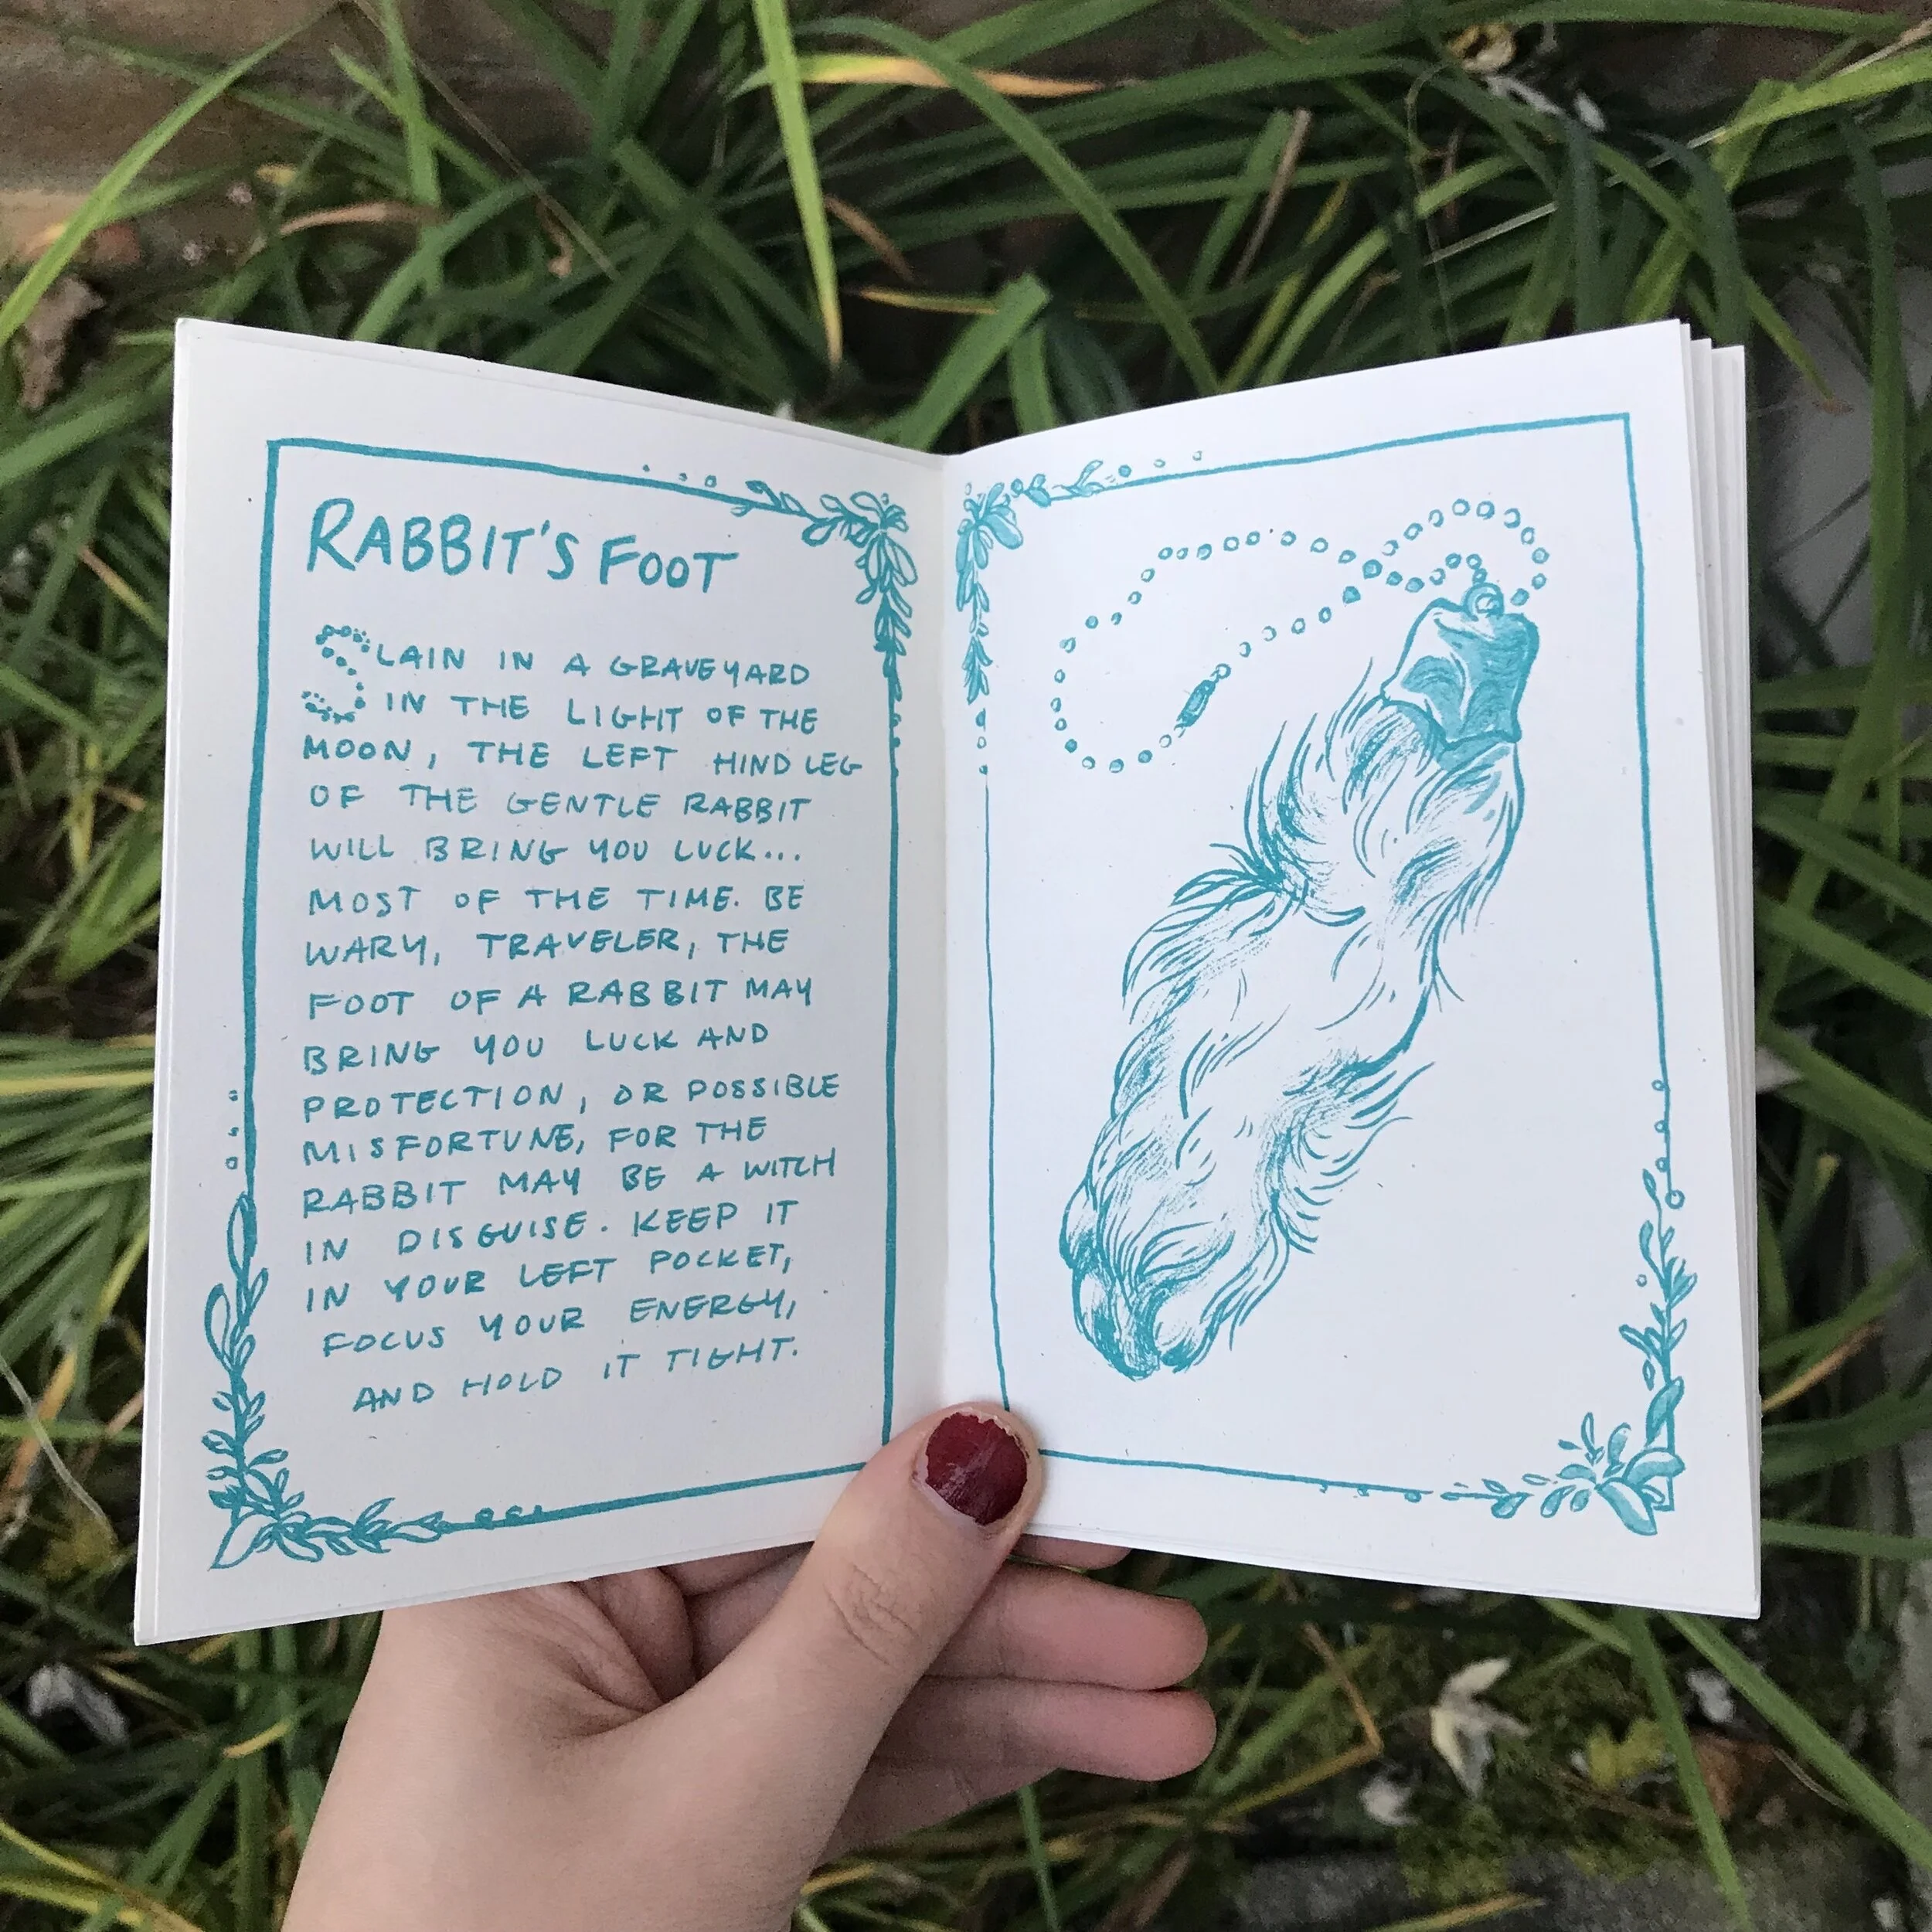 RABBIT'S FOOT
SLAIN IN A GRAVEYARD
IN THE LIGHT OF THE
MOON, THE LEFT HIND LEG
OF THE GENTLE RABBIT
WILL BRING YOU LUCK...
MOST OF THE TIME. BE
WARY, TRAVELER, THE
FOOT OF A RABBIT MAY
BRING YOU LUCK AND
PROTECTION, OR POSSIBLE
MISFORTUNE, FOR THE
RABBIT MAY BE A WITCH
IN DISGUISE. KEEP IT
IN YOUR LEFT POCKET,
FOCUS YOUR ENERGY,
AND HOLD IT TIGHT.